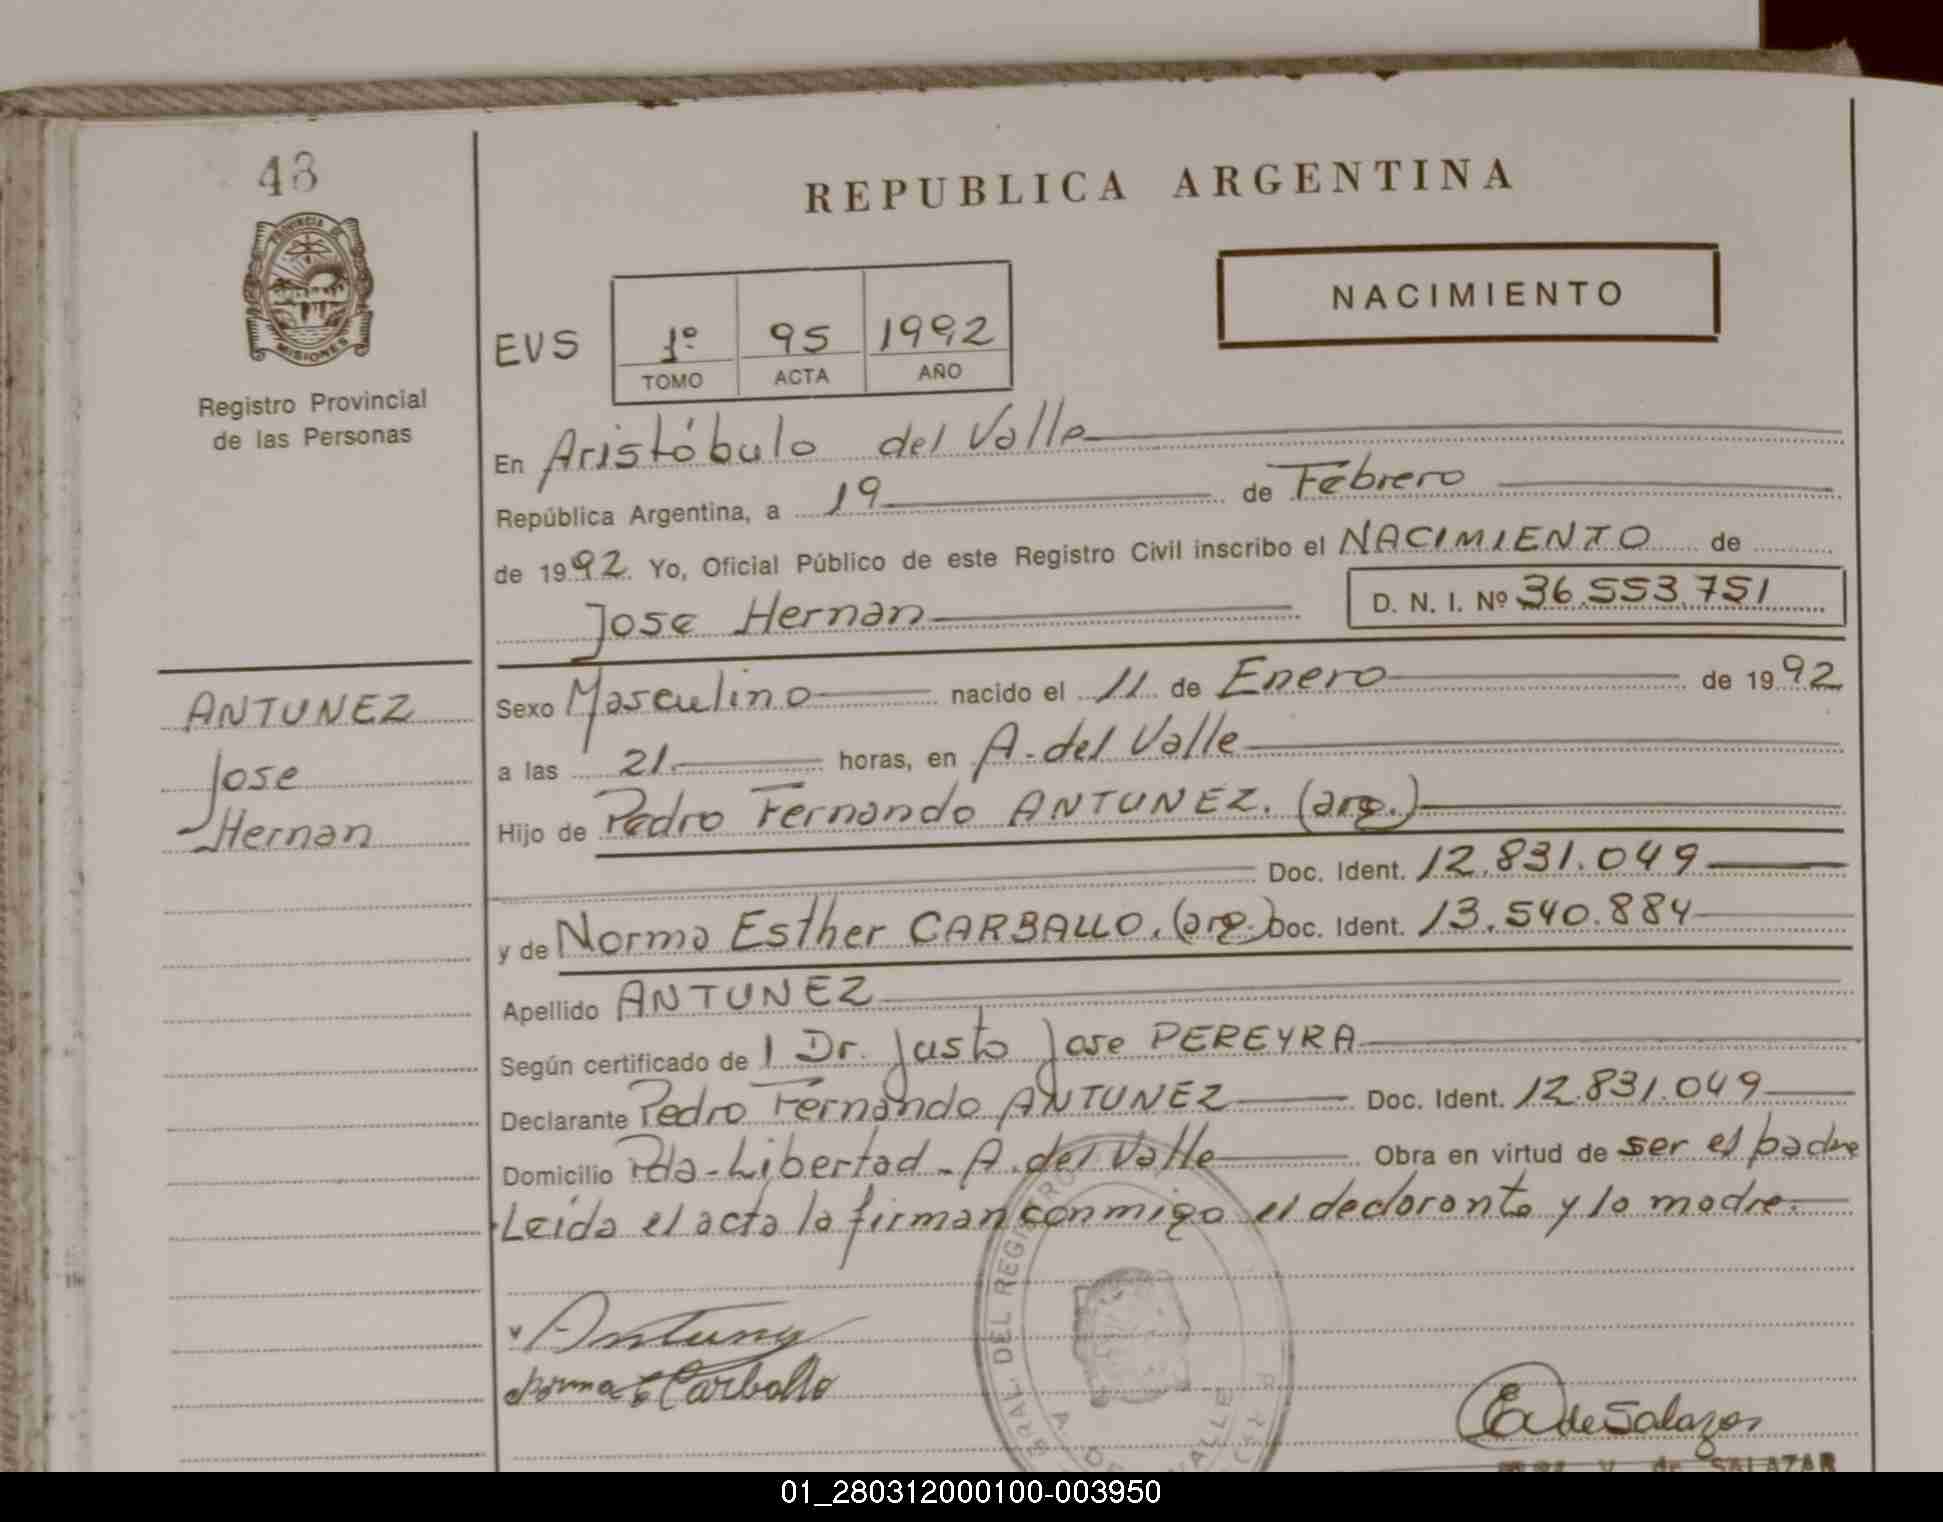 48
PROVINCIA DE
MISIONES
Registro Provincial
de las Personas
REPUBLICA ARGENTINA
NACIMIENTO
EVS
1º 95 1992
TOMO ACTA AÑO
En Aristóbulo del Valle
República Argentina, a 19 de Febrero
de 1992. Yo, Oficial Público de este Registro Civil inscribo el NACIMIENTO de
Jose Hernan D. N. I. Nº 36.553.751
ANTUNEZ
Jose
Hernan
Sexo Masculino nacido el 11 de Enero de 1992
a las 21. horas, en A. del Valle
Hijo de Pedro Fernando ANTUNEZ. (arg.)
Doc. Ident. 12.831.049
y de Norma Esther CARBALLO. (arg.) Doc. Ident. 13.540.884
Apellido ANTUNEZ
Según certificado de 1 Dr. Justo Jose PEREYRA
Declarante Pedro Fernando ANTUNEZ Doc. Ident. 12.831.049
Domicilio Pda-Libertad - A. del Valle Obra en virtud de ser el padre
Leida el acta la firman conmigo el declarante y la madre.
Antunez
Norma E Carballo
DEL REGISTRO
A. DEL VALLE
de Salazar
de SALAZAR
01_280312000100-003950